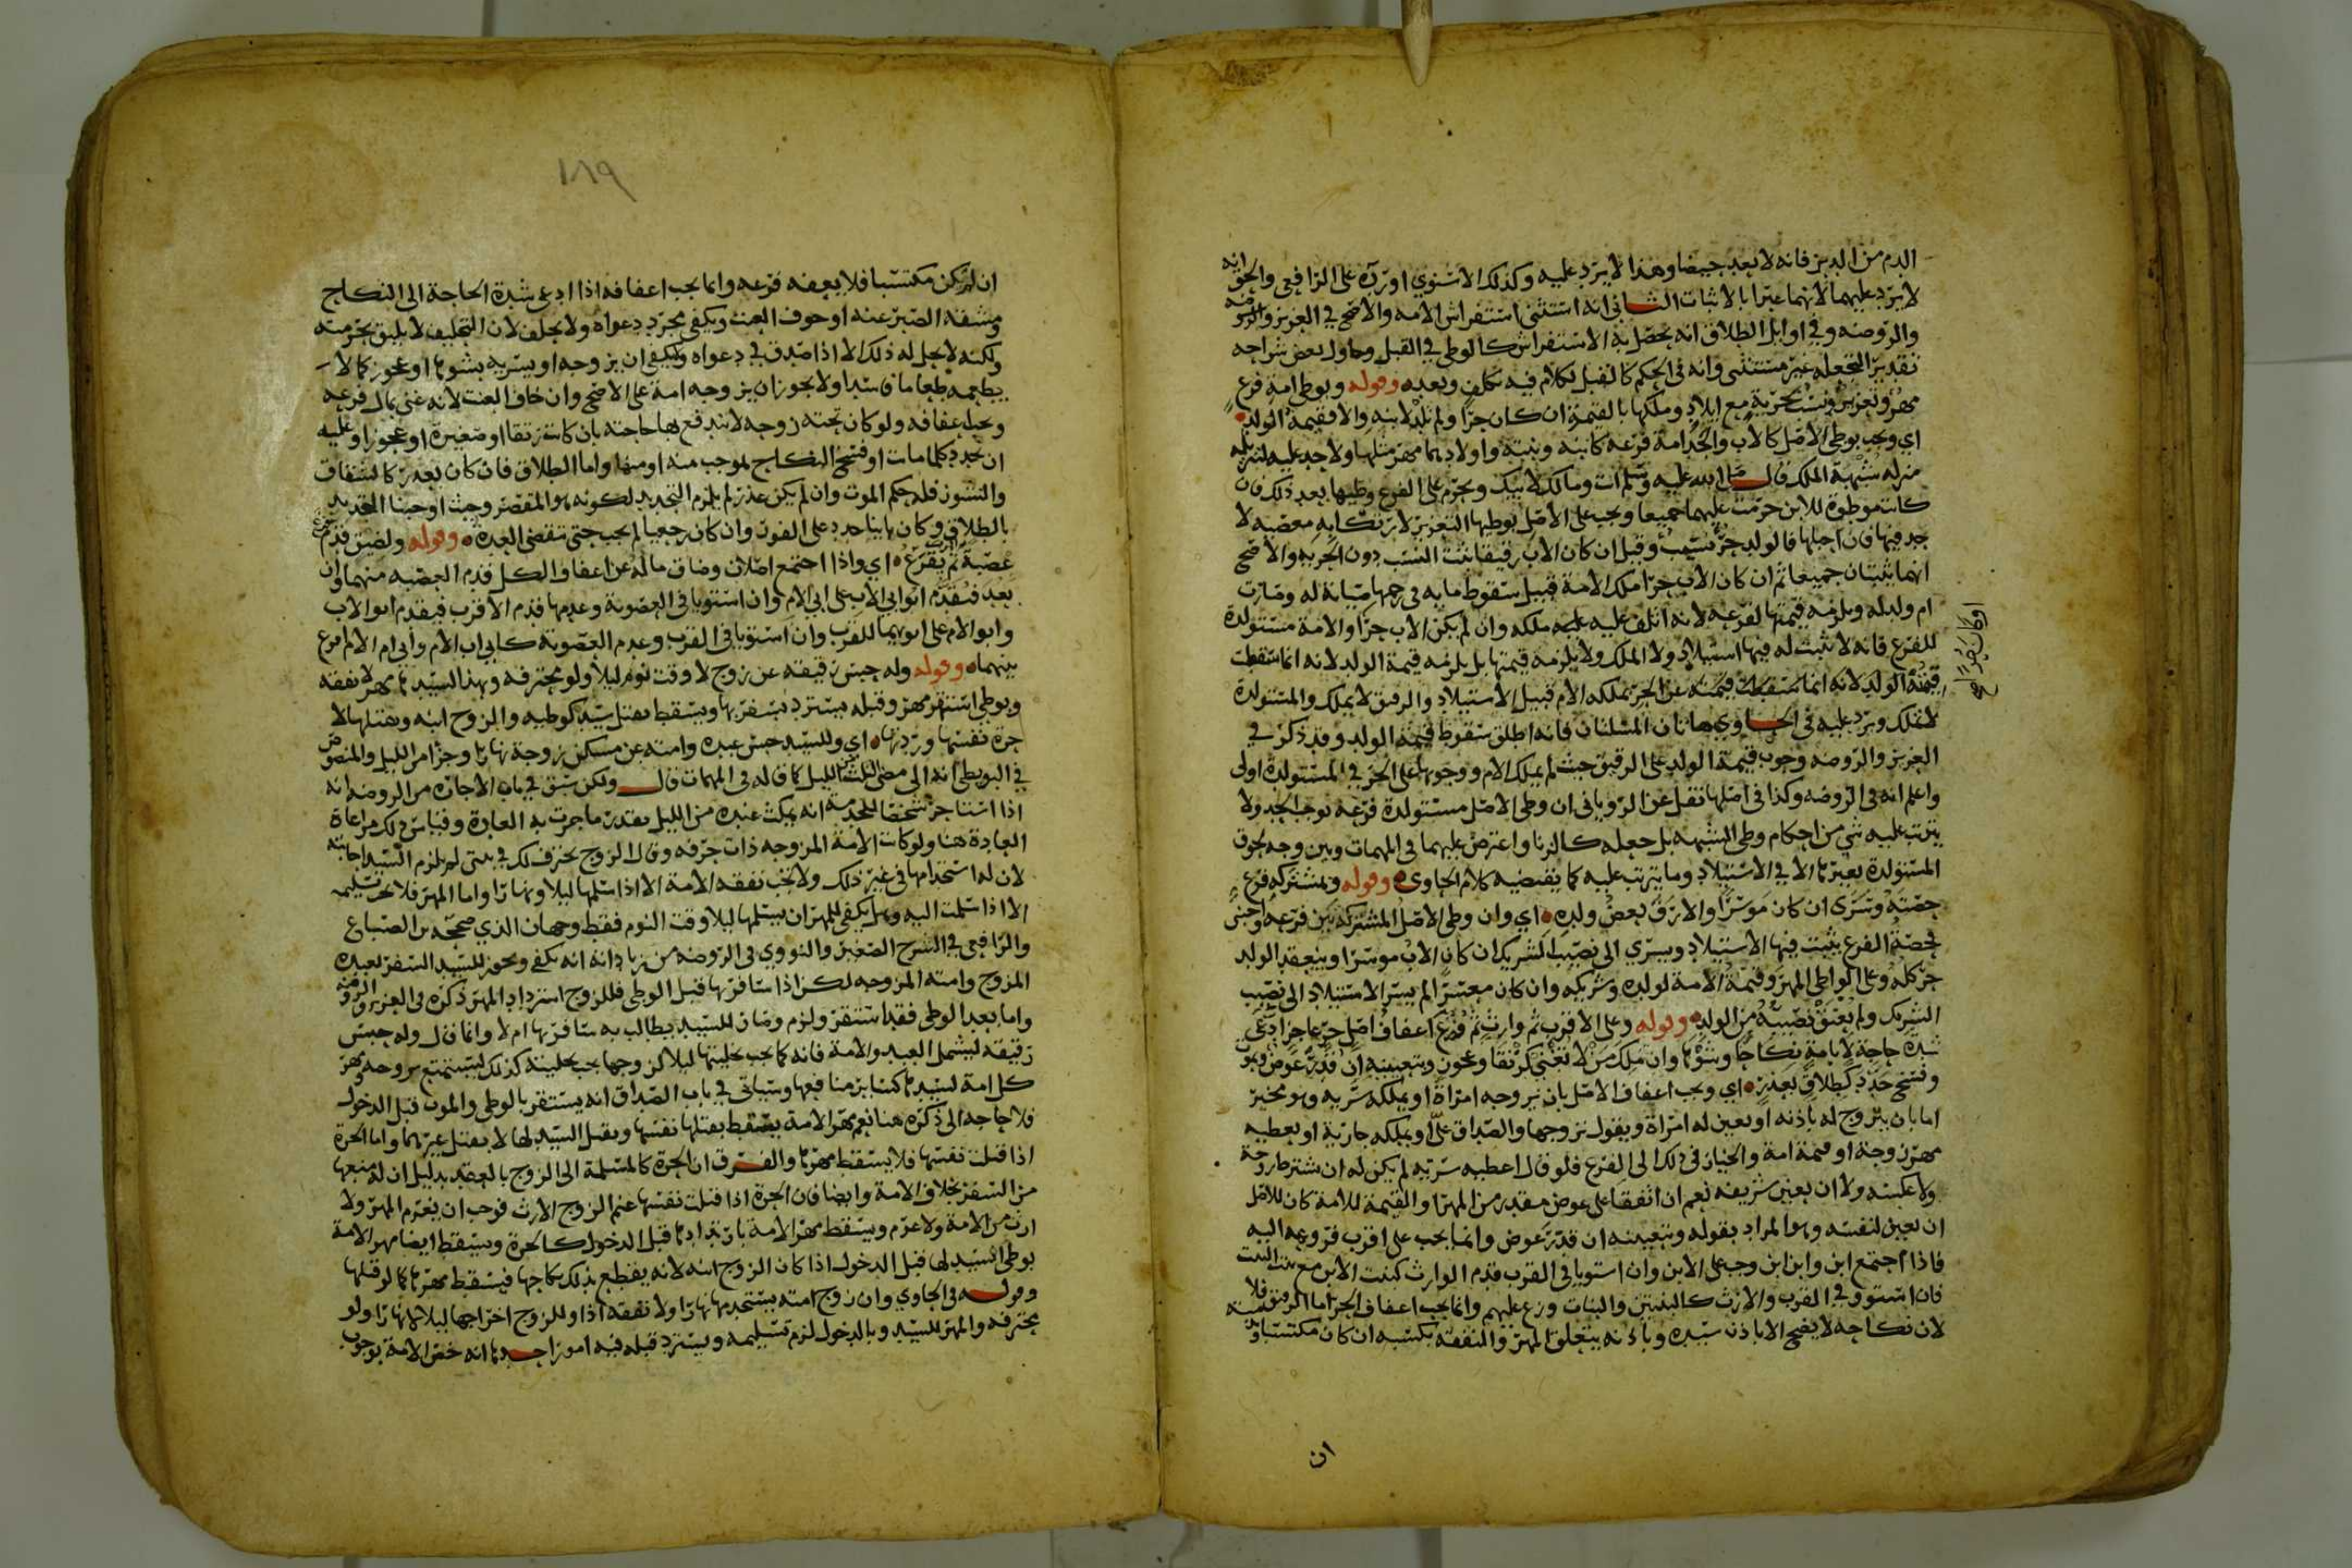 الدم من الدبر فانه لا يعد حيضا وهذا لا يرد عليه وكذلك الاسنوي اورده على الرافعي والحق انه
لا يرد عليهما لانهما عبرا بالاثبات الثاني انه استثنى استفراش الامة والاصح في العزيز
والروضه وفي اوايل الطلاق انه يحصل به الاستفراش كالوطي في القبل وحاول بعض شراحه
تقديرا لتجعله غير مستثنى وانه في الحكم كالقبل بكلام فيه تكلف وبعد وقوله وبوطي امة فرع
مهر وتعزير ونسب بحرية مع ايلاد وملكها بالقيمة ان كان حرا ولم تلد لابنه والا فقيمة الولد
اي ويجب بوطي الاصل كالاب والجد امة فرعه كابنه وبنته واولادهما مهر مثلها ولا حد عليه لتنزيله
منزله شبهة الملك قال صلى الله عليه وسلم انت ومالك لابيك ويحرم على الفرع وطيها بعد ذلك فان
كانت موطوة للابن حرمت عليهما جميعا ويجب على الاصل بوطيها التعزير لارتكابه معصيه لا
حد فيها فان احبلها فالولد حر نسيب وقيل ان كان الاب رقيقا ثبت النسب دون الحرية والاصح
انهما يثبتان جميعا ثم ان كان الاب حرا ملك الامة قبيل سقوط مايه في رحمها صيانة له وصارت
ام ولد له ويلزمه قيمتها لفرعه لانه اتلف عليه ملكه وان لم يكن الاب حرا والامة مستولدة
للفرع فانه لا يثبت له فيها استيلاد ولا الملك ولا يلزمه قيمتها بل يلزمه قيمة الولد لانه انما سقطت
قيمة الولد لانه انما سقطت قيمته عن الحر بملكه الام قبيل الاستيلاد والرقيق لا يملك والمستولدة
لا تملك ويرد عليه في الحاوي هاتان المسئلتان فانه اطلق سقوط قيمة الولد وقد ذكر في
العزيز والروضه وجوب قيمة الولد على الرقيق حيث لم يملك الام ووجوبها على الحر في المستولدة اولى
واعلم انه في الروضه وكذا في اصلها نقل عن الروياني ان وطي الاصل مستولدة فرعه يوجب الحد ولا
يترتب عليه شي من احكام وطي الشبهه بل جعله كالزنا واعترض عليهما في المهمات وبين وجه لحوق
المستولدة بغيرها الا في الاستيلاد وما يترتب عليه كما يقتضيه كلام الحاوي وقوله ومشتركه فرع
حصته وسرى ان كان موسرا والا رق بعض ولده اي وان وطي الاصل المشتركه بين فرعه واجنبي
فحصة الفرع يثبت فيها الاستيلاد ويسري الى نصيب الشريك ان كان الاب موسرا وينعقد الولد
حر كله وعلى الواطي المهر وقيمة الامة لولده وشريكه وان كان معسرا لم يسر الاستيلاد الى نصيب
الشريك ولم يعتق نصيبه من الولد وقوله وعلى الاقرب ثم وارث ثم وزع اعفاف اصل حر عاجز ادعى
شدة حاجة لا بامة نكاحا وشوها وان ملك من لا تغني كرتقا وعجوز وتعيينه ان قدر عوض وبموت
وفسخ جدد كطلاق بعذر اي ويجب اعفاف الاصل بان يزوجه امراة او يملكه سريه وهو مخير
اما بان يتزوج له باذنه او يعين له امراة ويقول تزوجها والصداق علي او يملكه جارية او يعطيه
مهر زوجة او قيمة امة والخيار في ذلك الى الفرع فلو قال اعطيه سريه لم يكن له ان يشترط زوجة
ولا عكسه ولا ان يعين شريفه نعم ان اتفقا على عوض مقدر من المهر او القيمة للامة كان للاصل
ان يعين لنفسه وهو المراد بقوله وتعيينه ان قدر عوض وانما يجب على اقرب فروعه اليه
فاذا اجتمع ابن وابن ابن وجب على الابن وان استويا في القرب قدم الوارث كبنت الابن مع بنت البنت
فان استووا في القرب والارث كالبنتين والبنات وزع عليهم وانما يجب اعفاف الحر اما الرقيق فلا
لان نكاحه لا يصح الا باذن سيده وباذنه يتعلق المهر والنفقة بكسبه ان كان مكتسبا
ان
١٨٩
ان لم يكن مكتسبا فلا يعفه فرعه وانما يجب اعفافه اذا ادعى شدة الحاجة الى النكاح
ومشقة الصبر عنه او خوف العنت ويكفي مجرد دعواه ولا يحلف لان التحليف لا يليق بحرمته
ولكنه لا يحل له ذلك الا اذا صدق في دعواه ويكفي ان يزوجه او يسريه بشوها او عجوز كما لا
يطعمه طعاما فاسدا ولا يجوز ان يزوجه امة على الاصح وان خاف العنت لانه غني بمال فرعه
ويجب اعفافه ولو كان تحته زوجه لا تندفع بها حاجته بان كانت رتقا او صغيرة او عجوز او عليه
ان يجدد كلما مات او فسخ النكاح بموجب منه او منها واما الطلاق فان كان بعذر كالشقاق
والنشوز فله حكم الموت وان لم يكن عذر لم يلزم التجديد لكونه هو المقصر وحيث اوجبنا التجديد
بالطلاق وكان باينا جدد على الفور وان كان رجعيا لم يجب حتى تنقضي العدة وقوله ولضيق قدم
عصبة ثم يقرع اي واذا اجتمع اصلان وضاق ماله عن اعفاف الكل قدم العصبه منهما وان
بعد فيقدم ابو ابي الاب على ابي الام وان استويا في العصوبة وعدمها قدم الاقرب فيقدم ابو الاب
وابو الام على ابويهما للقرب وان استويا في القرب وعدم العصوبة كابي اب الام وابي ام الام اقرع
بينهما وقوله وله حبس رقيقته عن زوج لا وقت نوم ليلا ولو محترفه وبهذا لسيدها مهر لا نفقه
وبوطي استقر مهر وقبله يسترد بسفر بها ويسقط بقتل سيد كوطيه والزوج ابنه وبقتلها لا
حرة نفسها وردتها اي وللسيد حبس عبده وامته عن مسكن زوجة نهارا وجزا من الليل والمنصوص
في البويطي انه الى مضي ثلث الليل كما قاله في المهمات قال ولكن سبق في باب الاجاره من الروضه انه
اذا استاجر شخصا للخدمة انه يمكث عنده من الليل بقدر ما جرت به العادة وقياس ذلك مراعاة
العادة هنا ولو كانت الامة المزوجه ذات حرفه وقال الزوج تحترف لك في بيتي لم يلزم السيد اجابته
لان له استخدامها في غير ذلك ولا تجب نفقه الامة الا اذا سلمها ليلا ونهارا واما المهر فلا تسليمه
الا اذا سلمت اليه وهل يكفي للمهر ان يسلمها ليلا وقت النوم فقط وجهان الذي صححه بن الصباغ
والرافعي في الشرح الصغير والنووي في الروضه من زياداته انه يكفي ويجوز للسيد السفر بعبده
المزوج وامته المزوجه لكن اذا سافر بها قبل الوطي فللزوج استرداد المهر ذكره في العزيز والروضه
واما بعد الوطي فقد استقر ولزم وصار للسيد يطالب به سافر بها ام لا وانما قال وله حبس
رقيقه ليشمل العبد والامة فانه كما يجب تخليتها ليلا لزوجها يجب تخليته كذلك ليستمتع بزوجه ومهر
كل امة لسيدها كساير منافعها وسياتي في باب الصداق انه يستقر بالوطي والموت قبل الدخول
فلا حاجه الى ذكره هنا نعم مهر الامة يسقط بقتلها نفسها وبقتل السيد لها لا بقتل غيرهما واما الحرة
اذا قتلت نفسها فلا يسقط مهرها والفرق ان الحرة كالمسلمة الى الزوج بالعقد بدليل ان له منعها
من السفر بخلاف الامة وايضا فان الحرة اذا قتلت نفسها غنم الزوج الارث فوجب ان يغرم المهر ولا
ارث من الامة ولا غرم ويسقط مهر الامة بارتدادها قبل الدخول كالحرة ويسقط ايضا مهر الامة
بوطي السيد لها قبل الدخول اذا كان الزوج ابنه لانه يقطع بذلك نكاحها فيسقط مهرها كما لو قتلها
وقوله في الحاوي وان زوج امته يستخدمها نهارا ولا نفقه اذا وللزوج اخراجها ليلا لا نهارا ولو
محترفه والمهر للسيد وبالدخول لزم تسليمه ويسترد قبله فيه امور احدها انه خص الامة بوجوب